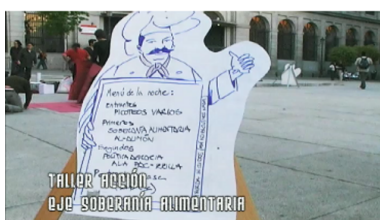 Menú de la noche:
entrantes
PICOTEOS VARIOS
Primeros
SOBERANÍA ALIMENTARIA
AL-LIMÓN
Segundos
POLÍTICA AGRÍCOLA
A LA
TALLER ACCIÓN
EJE SOBERANIA ALIMENTARIA